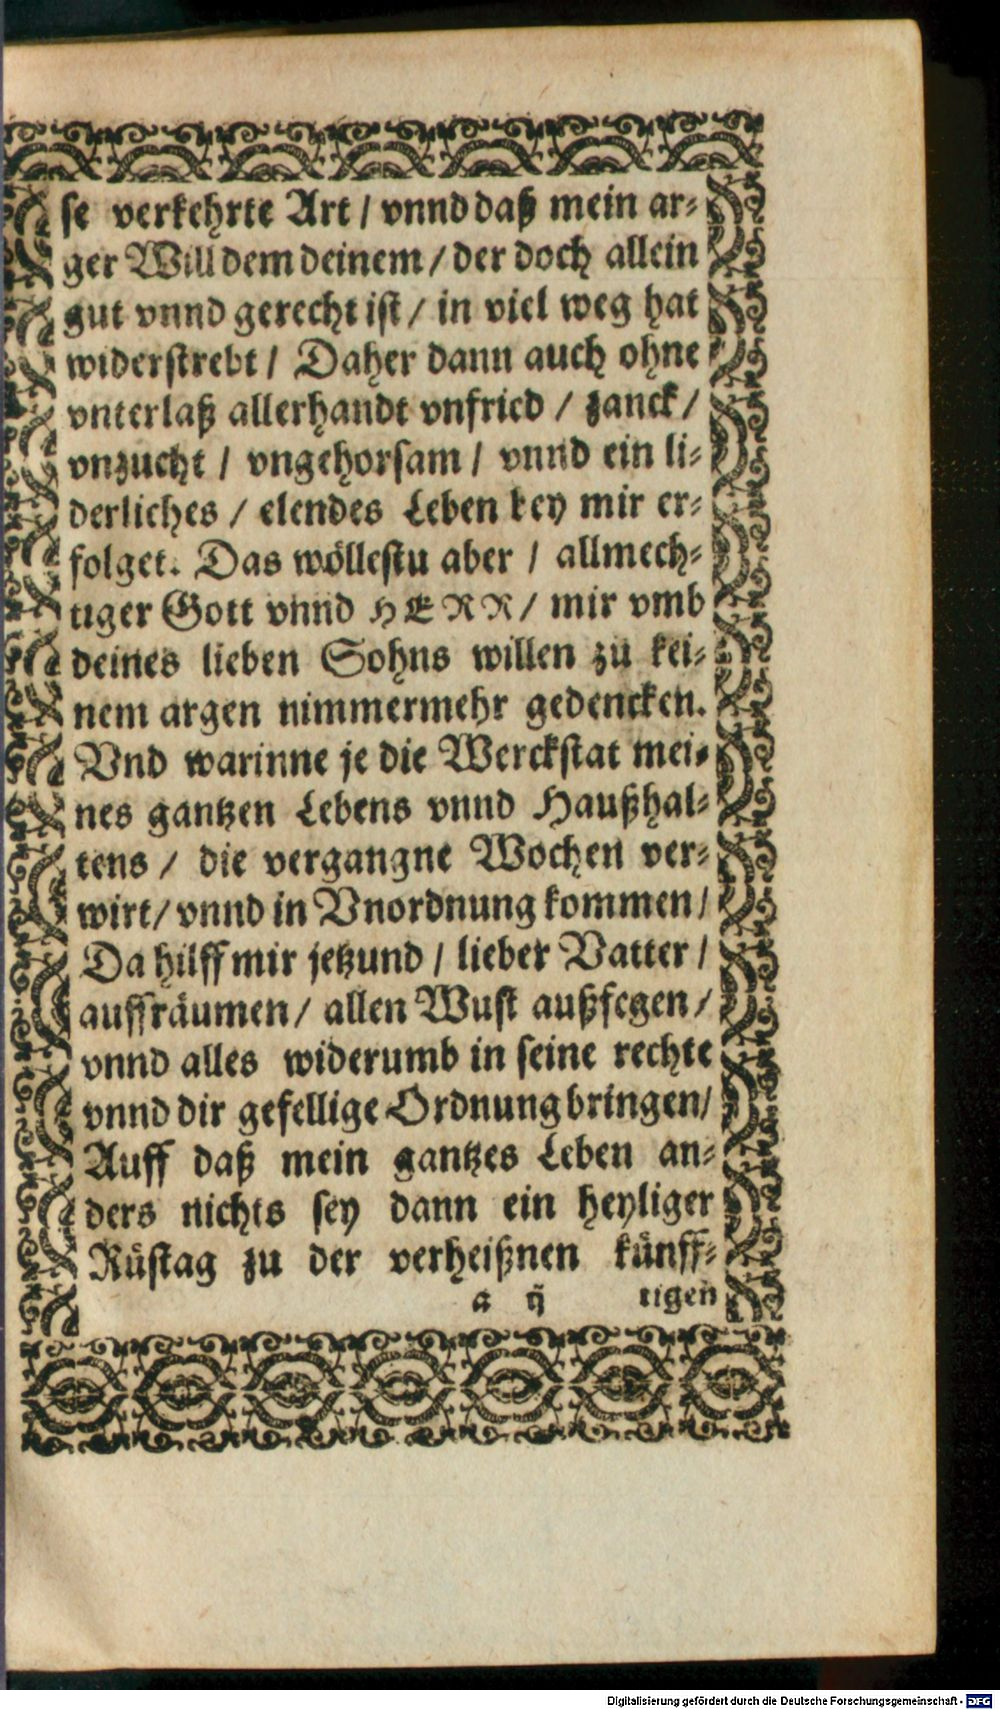 se verkehrte Art / vnnd daß mein ar-
ger Will dem deinem / der doch allein
gut vnnd gerecht ist / in viel weg hat
widerstrebt / Daher dann auch ohne
vnterlaß allerhandt vnfried / zanck /
vnzucht / vngehorsam / vnnd ein li-
derliches / elendes Leben bey mir er-
folget. Das wöllestu aber / allmech-
tiger Gott vnnd HERR / mir vmb
deines lieben Sohns willen zu kei-
nem argen nimmermehr gedencken.
Vnd warinne je die Werckstat mei-
nes gantzen Lebens vnnd Haußhal-
tens / die vergangne Wochen ver-
wirt / vnnd in Vnordnung kommen /
Da hilff mir jetzund / lieber Vatter /
auffräumen / allen Wust außfegen /
vnnd alles widerumb in seine rechte
vnnd dir gefellige Ordnung bringen /
Auff daß mein gantzes Leben an-
ders nichts sey dann ein heyliger
Rüstag zu der verheißnen künff-
a ij tigen
Digitalisierung gefördert durch die Deutsche Forschungsgemeinschaft - DFG